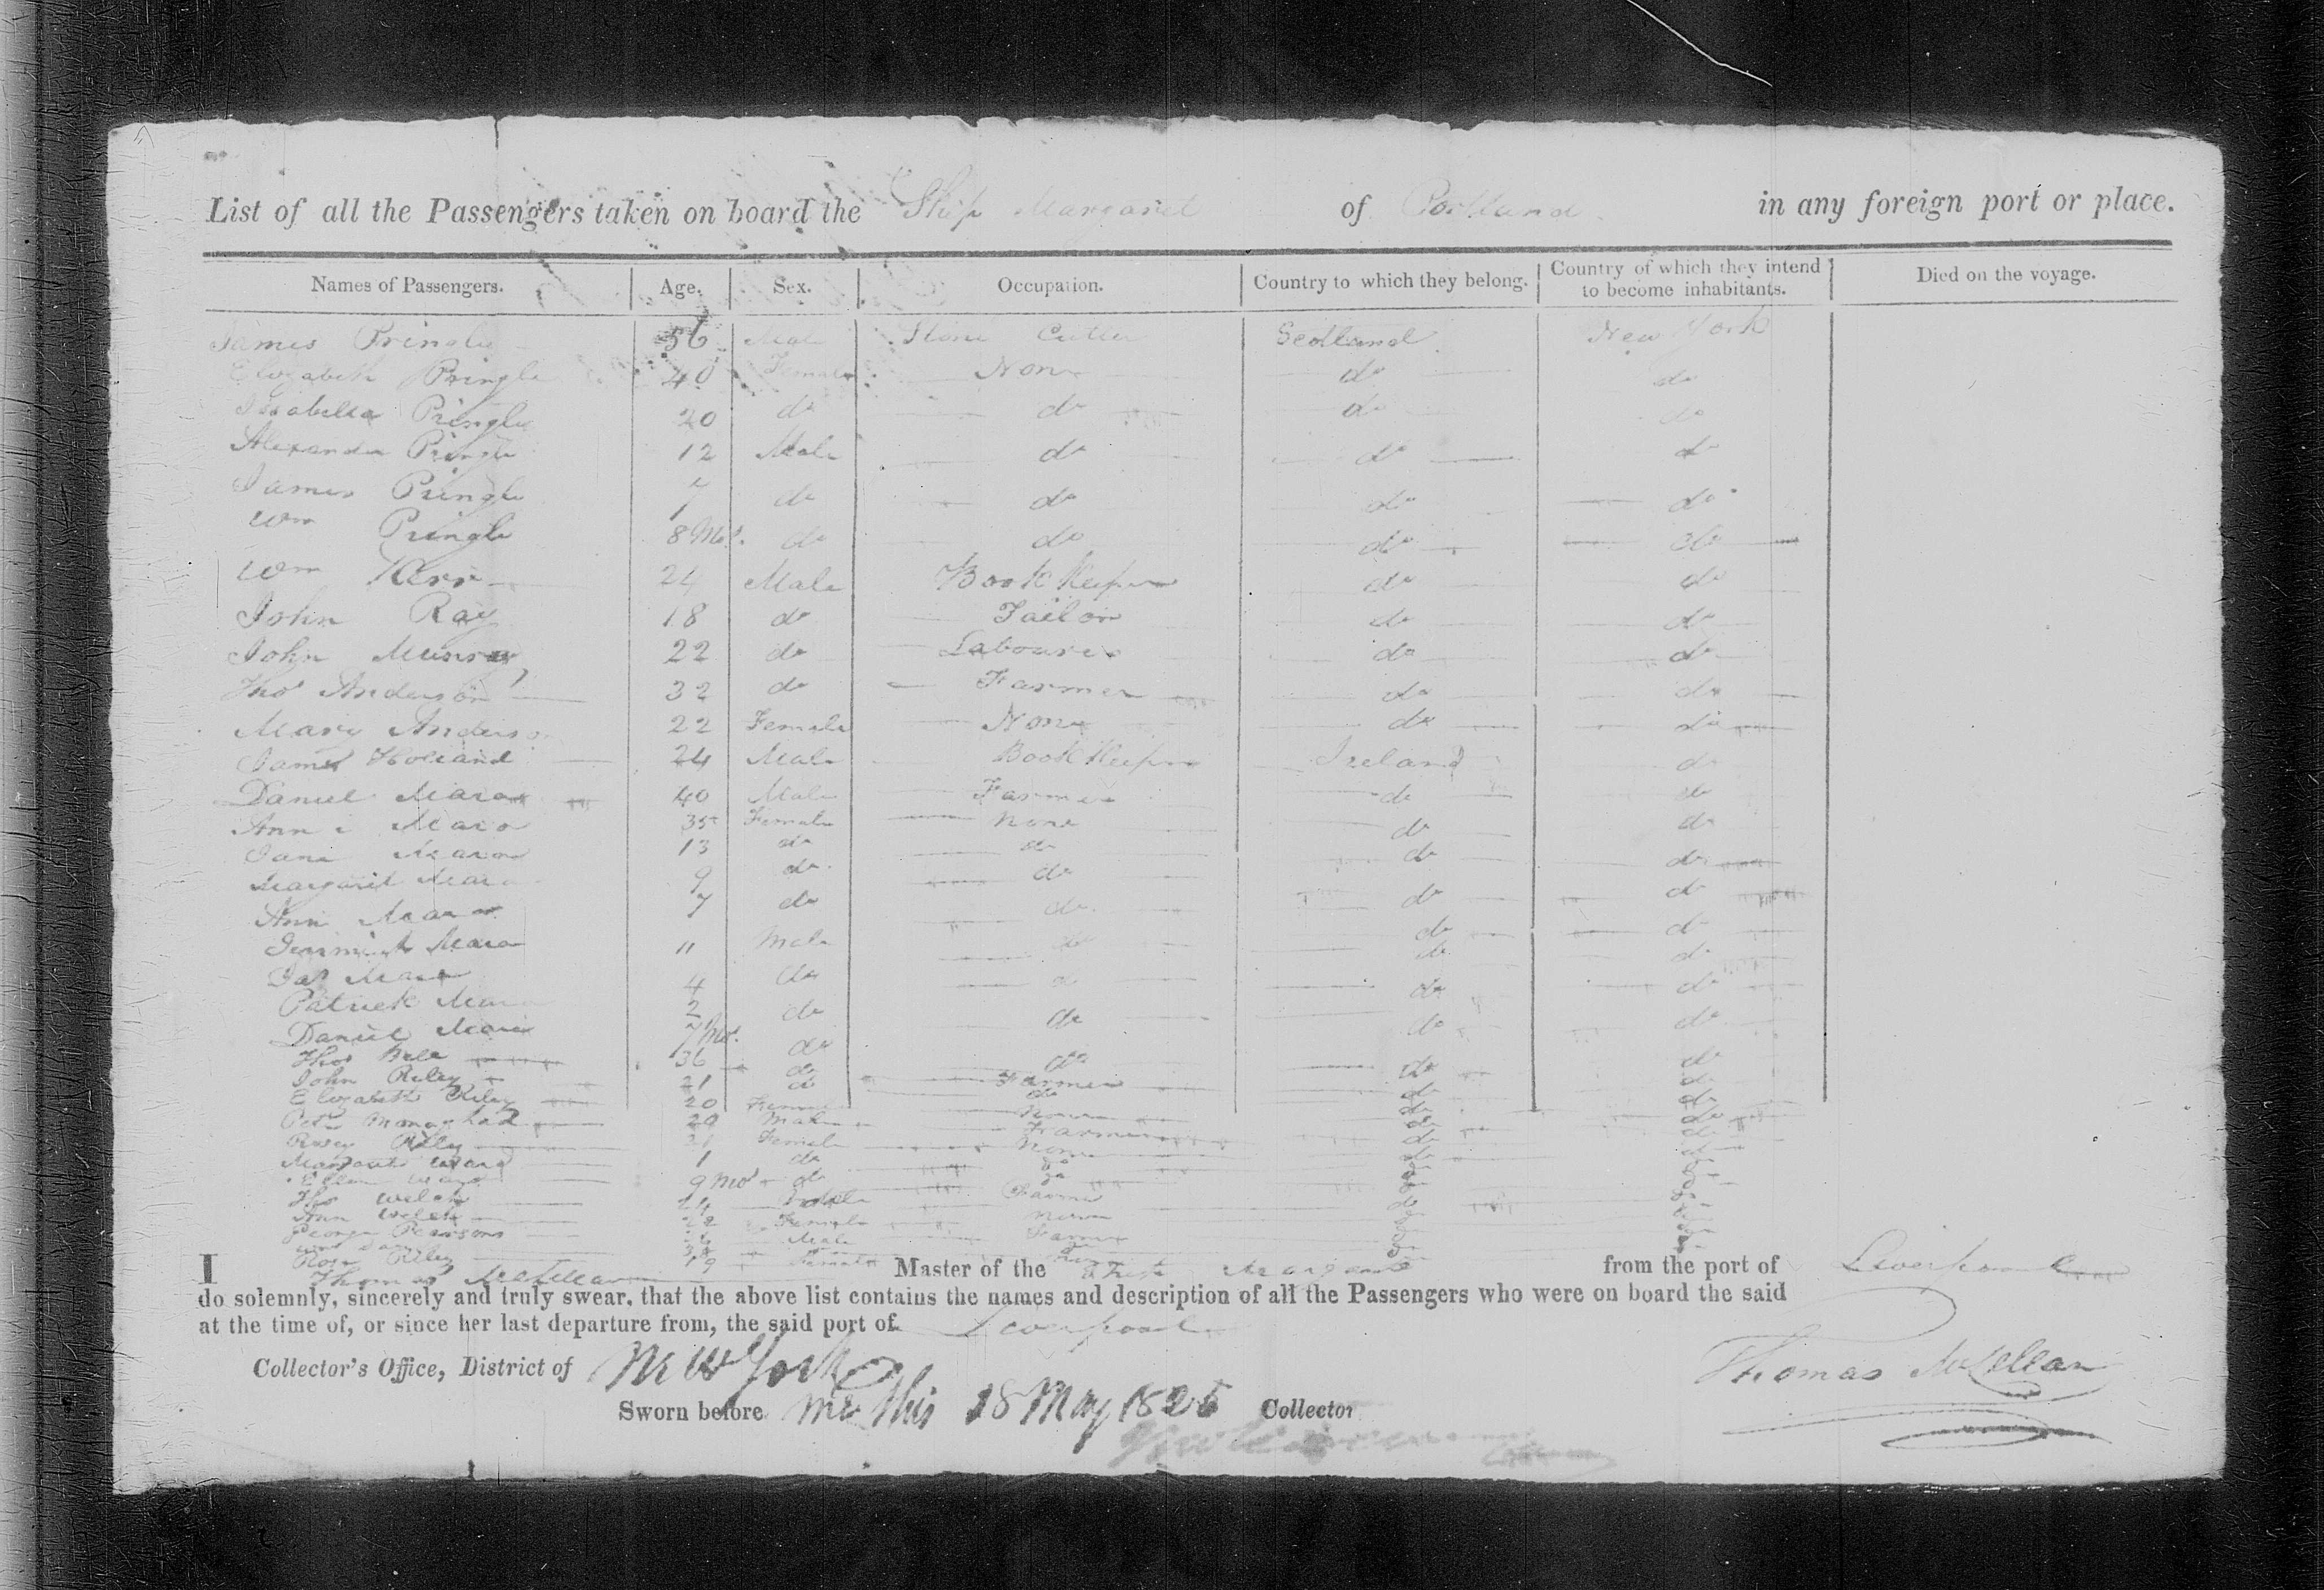 List of all the Passengers taken on board the Ship Margaret of Portland in any foreign port or place.
Names of Passengers. Age. Sex. Occupation. Country to which they belong. Country of which they intend to become inhabitants. Died on the voyage.
James Pringle 56 Male Stone Cutter Scotland New York
Elizabeth Pringle 40 Female None do do
Isabella Pringle 20 do do do do
Alexander Pringle 12 Male do do do
James Pringle 7 do do do do
Wm Pringle 8 Mos. do do do do
Wm Kerr 24 Male Book Keeper do do
John Ray 18 do Tailor do do
John Munroy 22 do Labourer do do
Thos Anderson 32 do Farmer do do
Mary Anderson 22 Female None do do
James Holland 24 Male Book Keeper Ireland do
Daniel Mara 40 Male Farmer do do
Ann Mara 35 Female None do do
Jane Mara 13 do do do do
Margaret Mara 9 do do do do
Ann Mara 7 do do do do
Jermiah Mara 11 Male do do do
Jas Mara 4 do do do do
Patrick Mara 2 do do do do
Daniel Mara 7 Mos. do do do do
Thos 36 do Farmer do do
John Riley 21 do do do do
Elizabeth Riley 20 Female None do do
Petr Monaghan 29 Male Farmer do do
Rosey Riley 21 Female None do do
Margaret Ward 1 do do do do
Ellen Ward 9 Mos do do do do
Thos Welch 24 Male Farmer do do
Ann Welch 22 Female None do do
George Parsons Male Farmer do do
Rose Riley 19 Female do do
I Thomas McLellan Master of the Ship Margaret from the port of Liverpool
do solemnly, sincerely and truly swear, that the above list contains the names and description of all the Passengers who were on board the said
at the time of, or since her last departure from, the said port of Liverpool
Thomas McLellan
Collector's Office, District of New York
Sworn before me this 18 May 1825 Collector